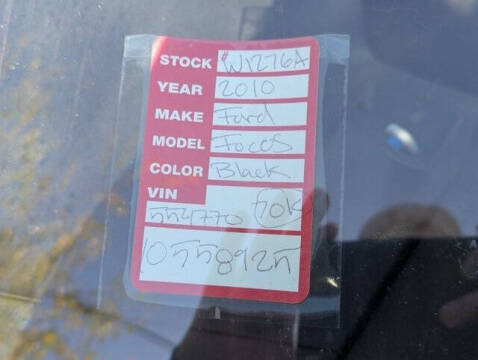 STOCK #W1276A
YEAR 2010
MAKE Ford
MODEL Focos
COLOR Black
VIN
554770 70K
10558925